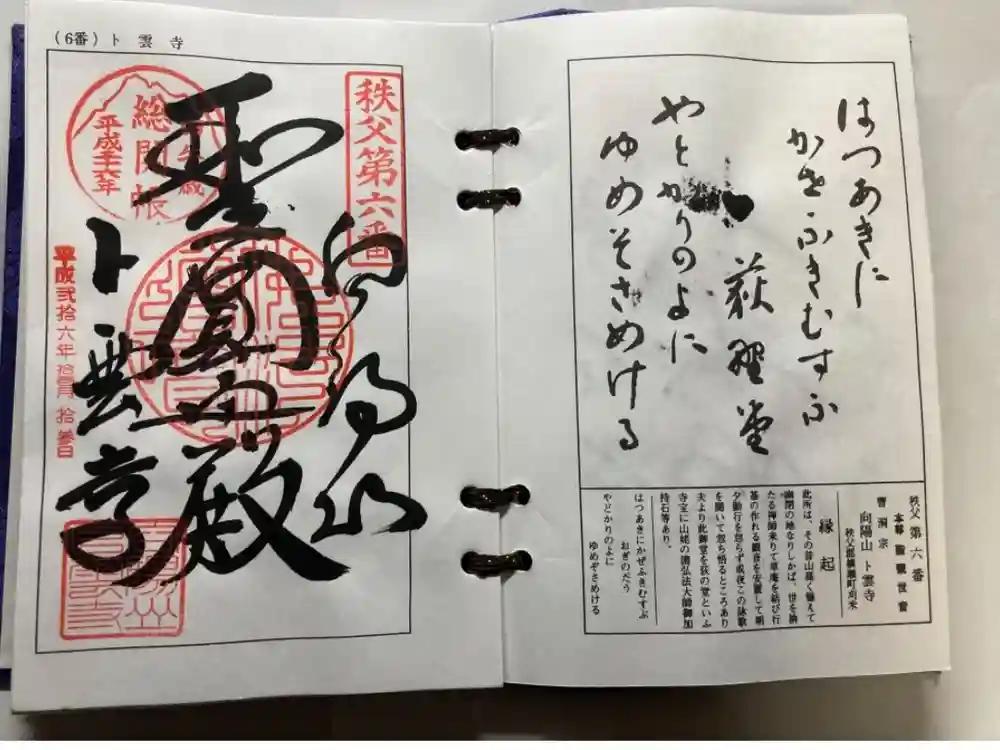 (6番)卜雲寺
秩父第六番
向陽山
聖圓通殿
卜雲寺
総開帳
平成二十六年
平成弐拾六年
はつあきに
かぜふきむすふ
荻野堂
やとかりのよに
ゆめそさめける
秩父第六番
本尊 聖観世音
曹洞宗
向陽山卜雲寺
秩父郡横瀬町苅米
縁起
此所は、その昔山高く聳えて
幽閉の地なりしかば、世を捨
たる禅師来りて草庵を結び行
基の作れる観音を安置して朝
夕勤行を怠らず或夜この詠歌
を聞いて忽ち悟るところあり
夫より此御堂を荻の堂といふ
寺宝に山姥の歯弘法大師御加
持石等あり。
はつあきにかぜふきむすぶ
おぎのだう
やどかりのよに
ゆめぞさめける